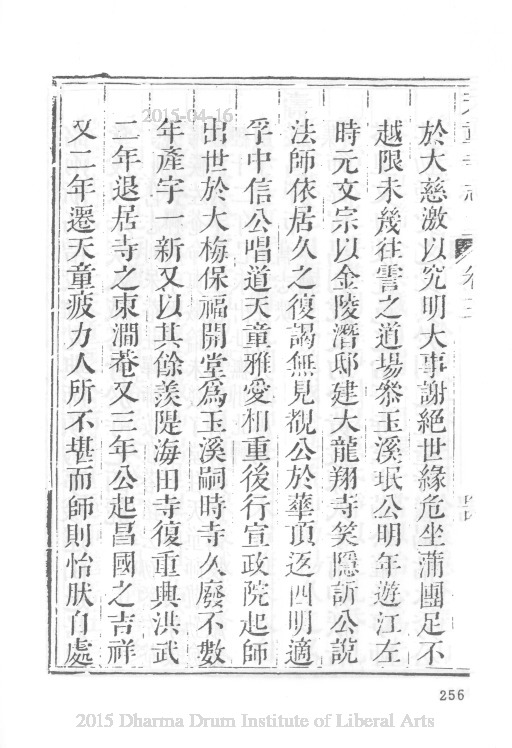 2015-04-16
天童寺志 卷三
於大慈激以究明大事謝絕世緣危坐蒲團足不
越限未幾往霅之道場叅玉溪珉公明年遊江左
時元文宗以金陵潛邸建大龍翔寺笑隱訢公說
法師依居久之復謁無見覩公於華頂返四明適
孚中信公唱道天童雅愛相重後行宣政院起師
出世於大梅保福開堂爲玉溪嗣時寺久廢不數
年產宇一新又以其餘羨隄海田寺復重興洪武
二年退居寺之東澗菴又三年公起昌國之吉祥
又二年遷天童疲力人所不堪而師則怡肰自處
256
2015 Dharma Drum Institute of Liberal Arts